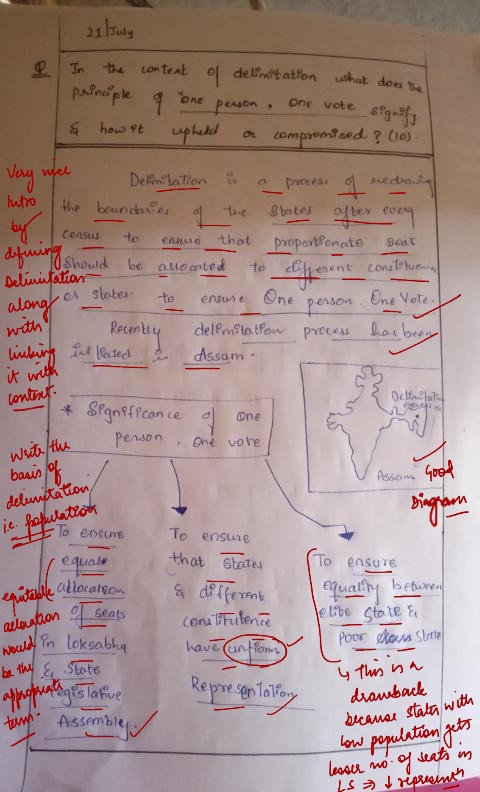 21/July
Q In the context of delimitation what does the
principle of one person, One vote signify
& how it upheld or compromised? (10).
Very nice
Intro
by
defining
Delimitation
along
with
linking
it with
context.
Delimitation is a process of redrawing
the boundaries of the States after every
census to ensure that proportionate seat
Should be allocated to different constituencies
or states. to ensure One person. One Vote.
Recently delimitation process has been
initiated in Assam.
* Significance of One
person, One vote
Delimitation
process in
Assam
Good
Diagram
Write the
basis of
delimitation
i.e. population
To ensure
equal
allocation
of seats
in Loksabha
& State
legislative
Assembly.
equitable
allocation
would
be the
appropriate
term.
To ensure
that States
& different
constituence
have uniform
Representation
To ensure
equality between
elite State &
Poor State
↳ This is a
drawback
because states with
low population gets
lesser no. of seats in
LS ⇒ ↓